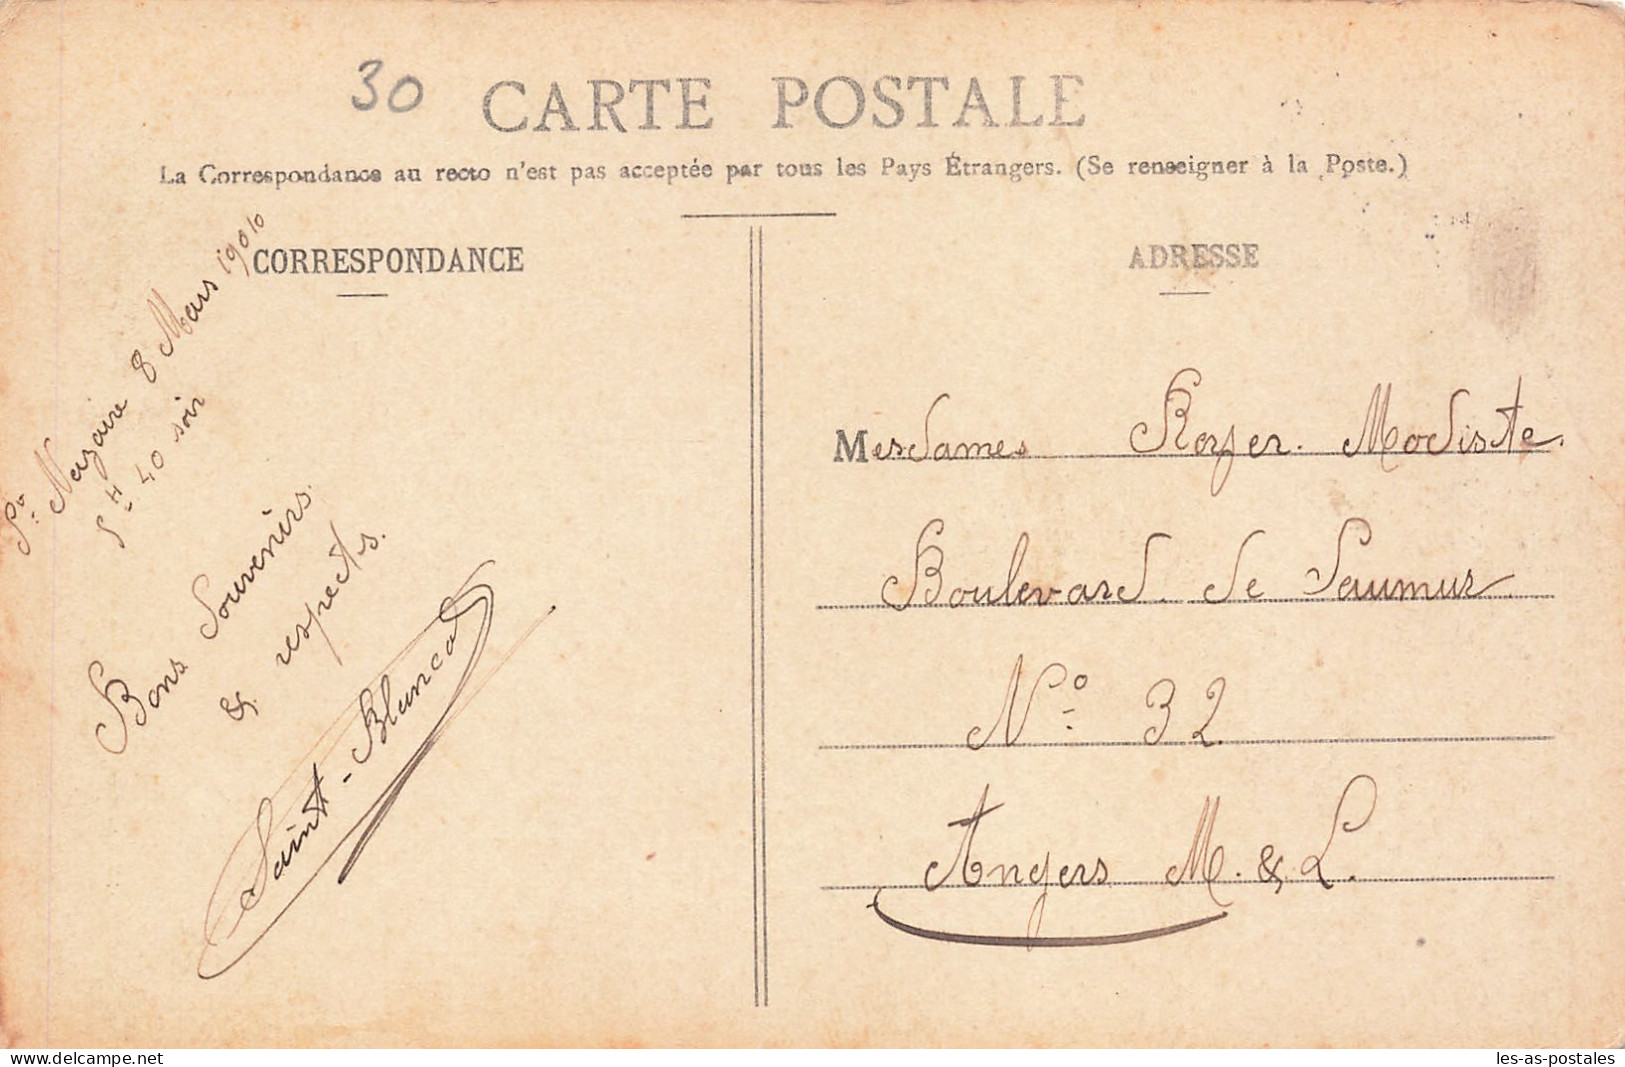 30
CARTE POSTALE
La Correspondance au recto n'est pas acceptée par tous les Pays Étrangers. (Se renseigner à la Poste.)
CORRESPONDANCE
ADRESSE
St. Nazaire 8 Mars
5 H 40 soir
Bons Souvenirs.
& respects.
Saint-Blancat
Mesdames Royer. Modiste.
Boulevard. de Saumur.
No. 32
Angers M. & L.
www.delcampe.net
les-as-postales